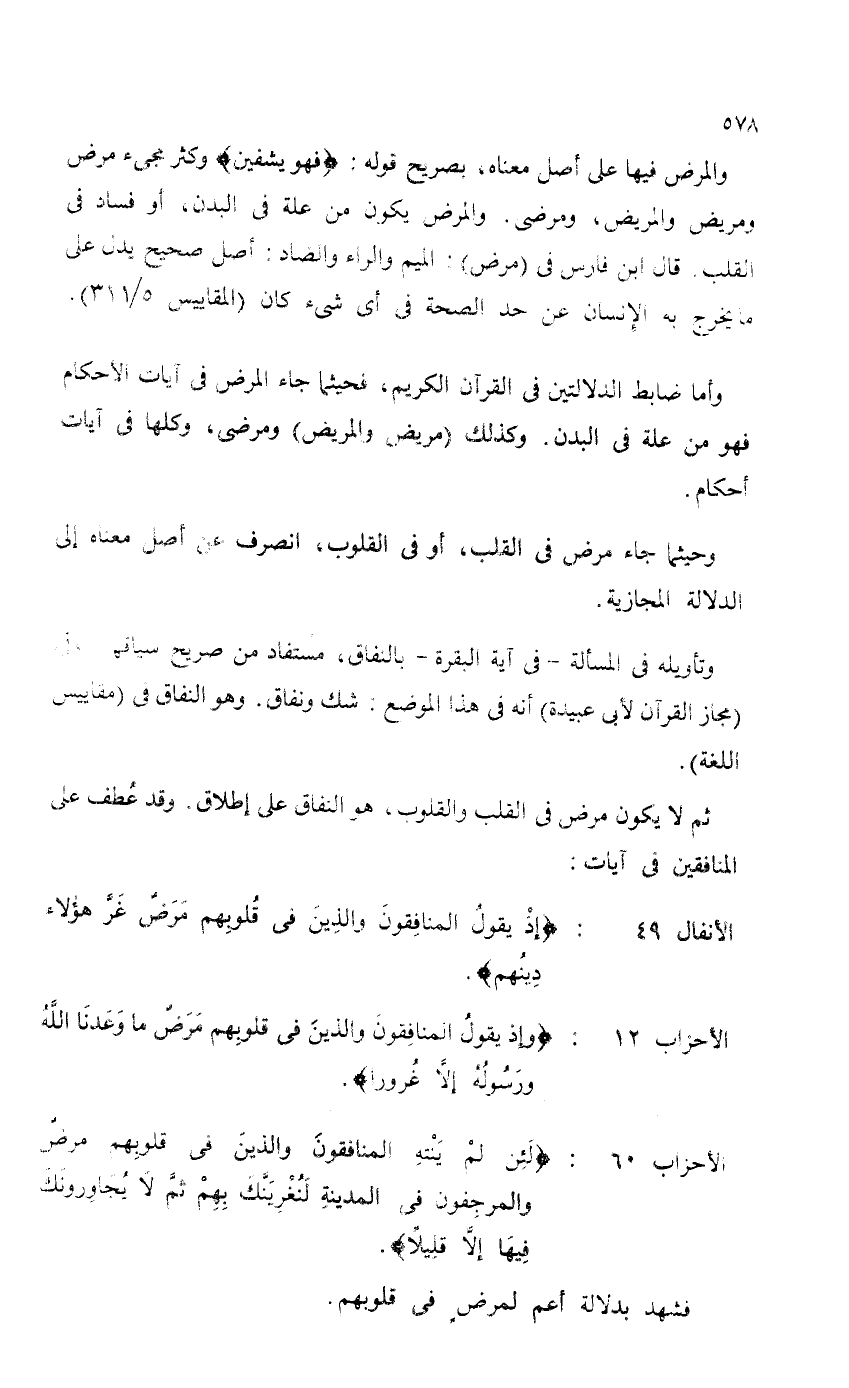 ٥٧٨
والمرض فيها على أصل معناه، بصريح قوله : ﴿فهو يشفين﴾ وكثر مجىء مرض
ومريض والمريض، ومرضى. والمرض يكون من علة فى البدن، أو فساد فى
القلب. قال ابن فارس فى (مرض) : الميم والراء والضاد : أصل صحيح يدل على
ما يخرج به الإنسان عن حد الصحة فى أى شىء كان (المقاييس ٣١١/٥).
وأما ضابط الدلالتين فى القرآن الكريم، فحيثما جاء المرض فى آيات الأحكام
فهو من علة فى البدن. وكذلك (مريض والمريض) ومرضى، وكلها فى آيات
أحكام.
وحيثما جاء مرض فى القلب، أو فى القلوب، انصرف عن أصل معناه إلى
الدلالة المجازية.
وتأويله فى المسألة - فى آية البقرة - بالنفاق، مستفاد من صريح سياقها
(مجاز القرآن لأبى عبيدة) أنه فى هذا الموضع : شك ونفاق. وهو النفاق فى (مقاييس
اللغة).
ثم لا يكون مرض فى القلب والقلوب، هو النفاق على إطلاق. وقد عُطف على
المنافقين فى آيات :
الأنفال ٤٩ : ﴿إذْ يقولُ المنافِقونَ والذِينَ فى قُلوبِهم مَرَضٌ غَرَّ هؤلاء
دِينُهم﴾.
الأحزاب ١٢ : ﴿وإذ يقولُ المنافِقونَ والذينَ فى قلوبِهم مَرَضٌ ما وَعَدنَا اللَّهُ
ورَسُولُهُ إلاَّ غُرورا﴾.
الأحزاب ٦٠ : ﴿لَئِن لمْ يَنْتهِ المنافقونَ والذينَ فى قلوبِهم مرضٌ
والمرجِفون فى المدينةِ لَنُغْرِيَنَّكَ بِهِمْ ثمَّ لَا يُجَاوِرونَكَ
فِيهَا إلَّا قلِيلًا﴾.
فشهد بدلالة أعم لمرضٍ فى قلوبهم.